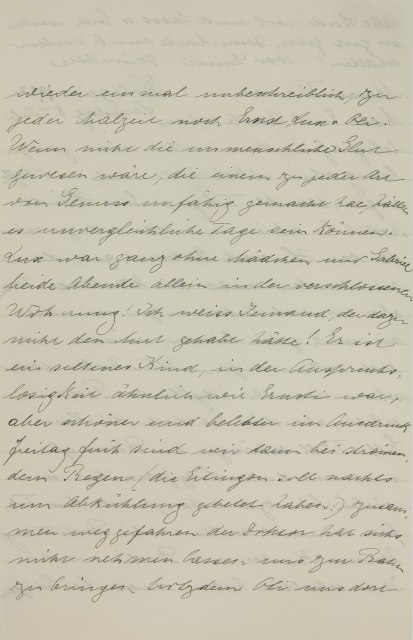 wieder einmal unbeschreiblich, zu
jeder Malzeit noch Ernst, Lux u Oli.
Wenn nicht die unmenschliche Glut
gewesen wäre, die einem zu jeder Art
von Genuss unfähig gemacht hat, hätten
es unvergleichliche Tage sein können.
Lux war ganz ohne Mädchen mit Sabine
beide Abende allein in der verschlossenen
Wohnung! Ich weiss Jemand, der dazu
nicht den Mut gehabt hätte! Er ist
ein seltenes Kind, in der Anspruchs-
losigkeit ähnlich wie Ernsti war,
aber schöner und belebter im Ausdruck.
Freitag früh sind wir dann bei strömen-
dem Regen (die Eitingon soll nachts
um Abkühlung gebetet haben!) zusam-
men weggefahren, der Doktor hat sichs
nicht nehmen lassen uns zur Bahn
zu bringen trotzdem Oli uns dort